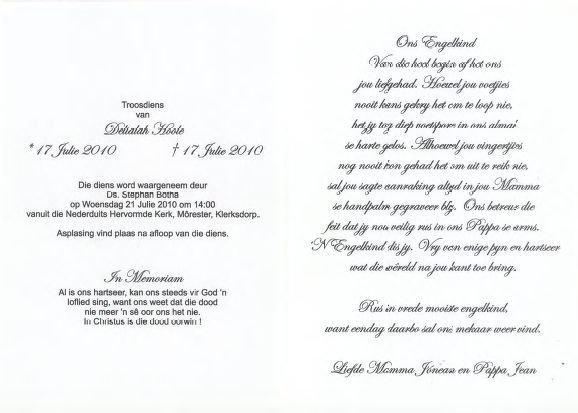 Troosdiens
van
Delialah Hoole
* 17 Julie 2010 † 17 Julie 2010
Die diens word waargeneem deur
Ds. Stephan Botha
op Woensdag 21 Julie 2010 om 14:00
vanuit die Nederduits Hervormde Kerk, Môrester, Klerksdorp..
Asplasing vind plaas na afloop van die diens.
In Memoriam
Al is ons hartseer, kan ons steeds vir God 'n
loflied sing, want ons weet dat die dood
nie meer 'n sê oor ons het nie.
In Christus is die dood oorwin !
Ons Engelkind
Van die begin af het ons
jou liefgehad. Hoewel jou voetjies
nooit kans gekry het om te loop nie,
het jy tog diep voetspore in ons almal
se harte gelos. Alhoewel jou vingertjies
nog nooit kon gehad het om uit te reik nie,
sal jou sagte aanraking altyd in jou Mamma
se handpalm gegraveer bly. Ons betreur die
feit dat jy nou veilig rus in ons Pappa se arms.
'N Engelkind dis jy. Vry van enige pyn en hartseer
wat die wêreld na jou kant toe bring.
Rus in vrede mooiste engelkind,
want eendag daarbo sal ons mekaar weer vind.
Liefde Mamma en Pappa Jean